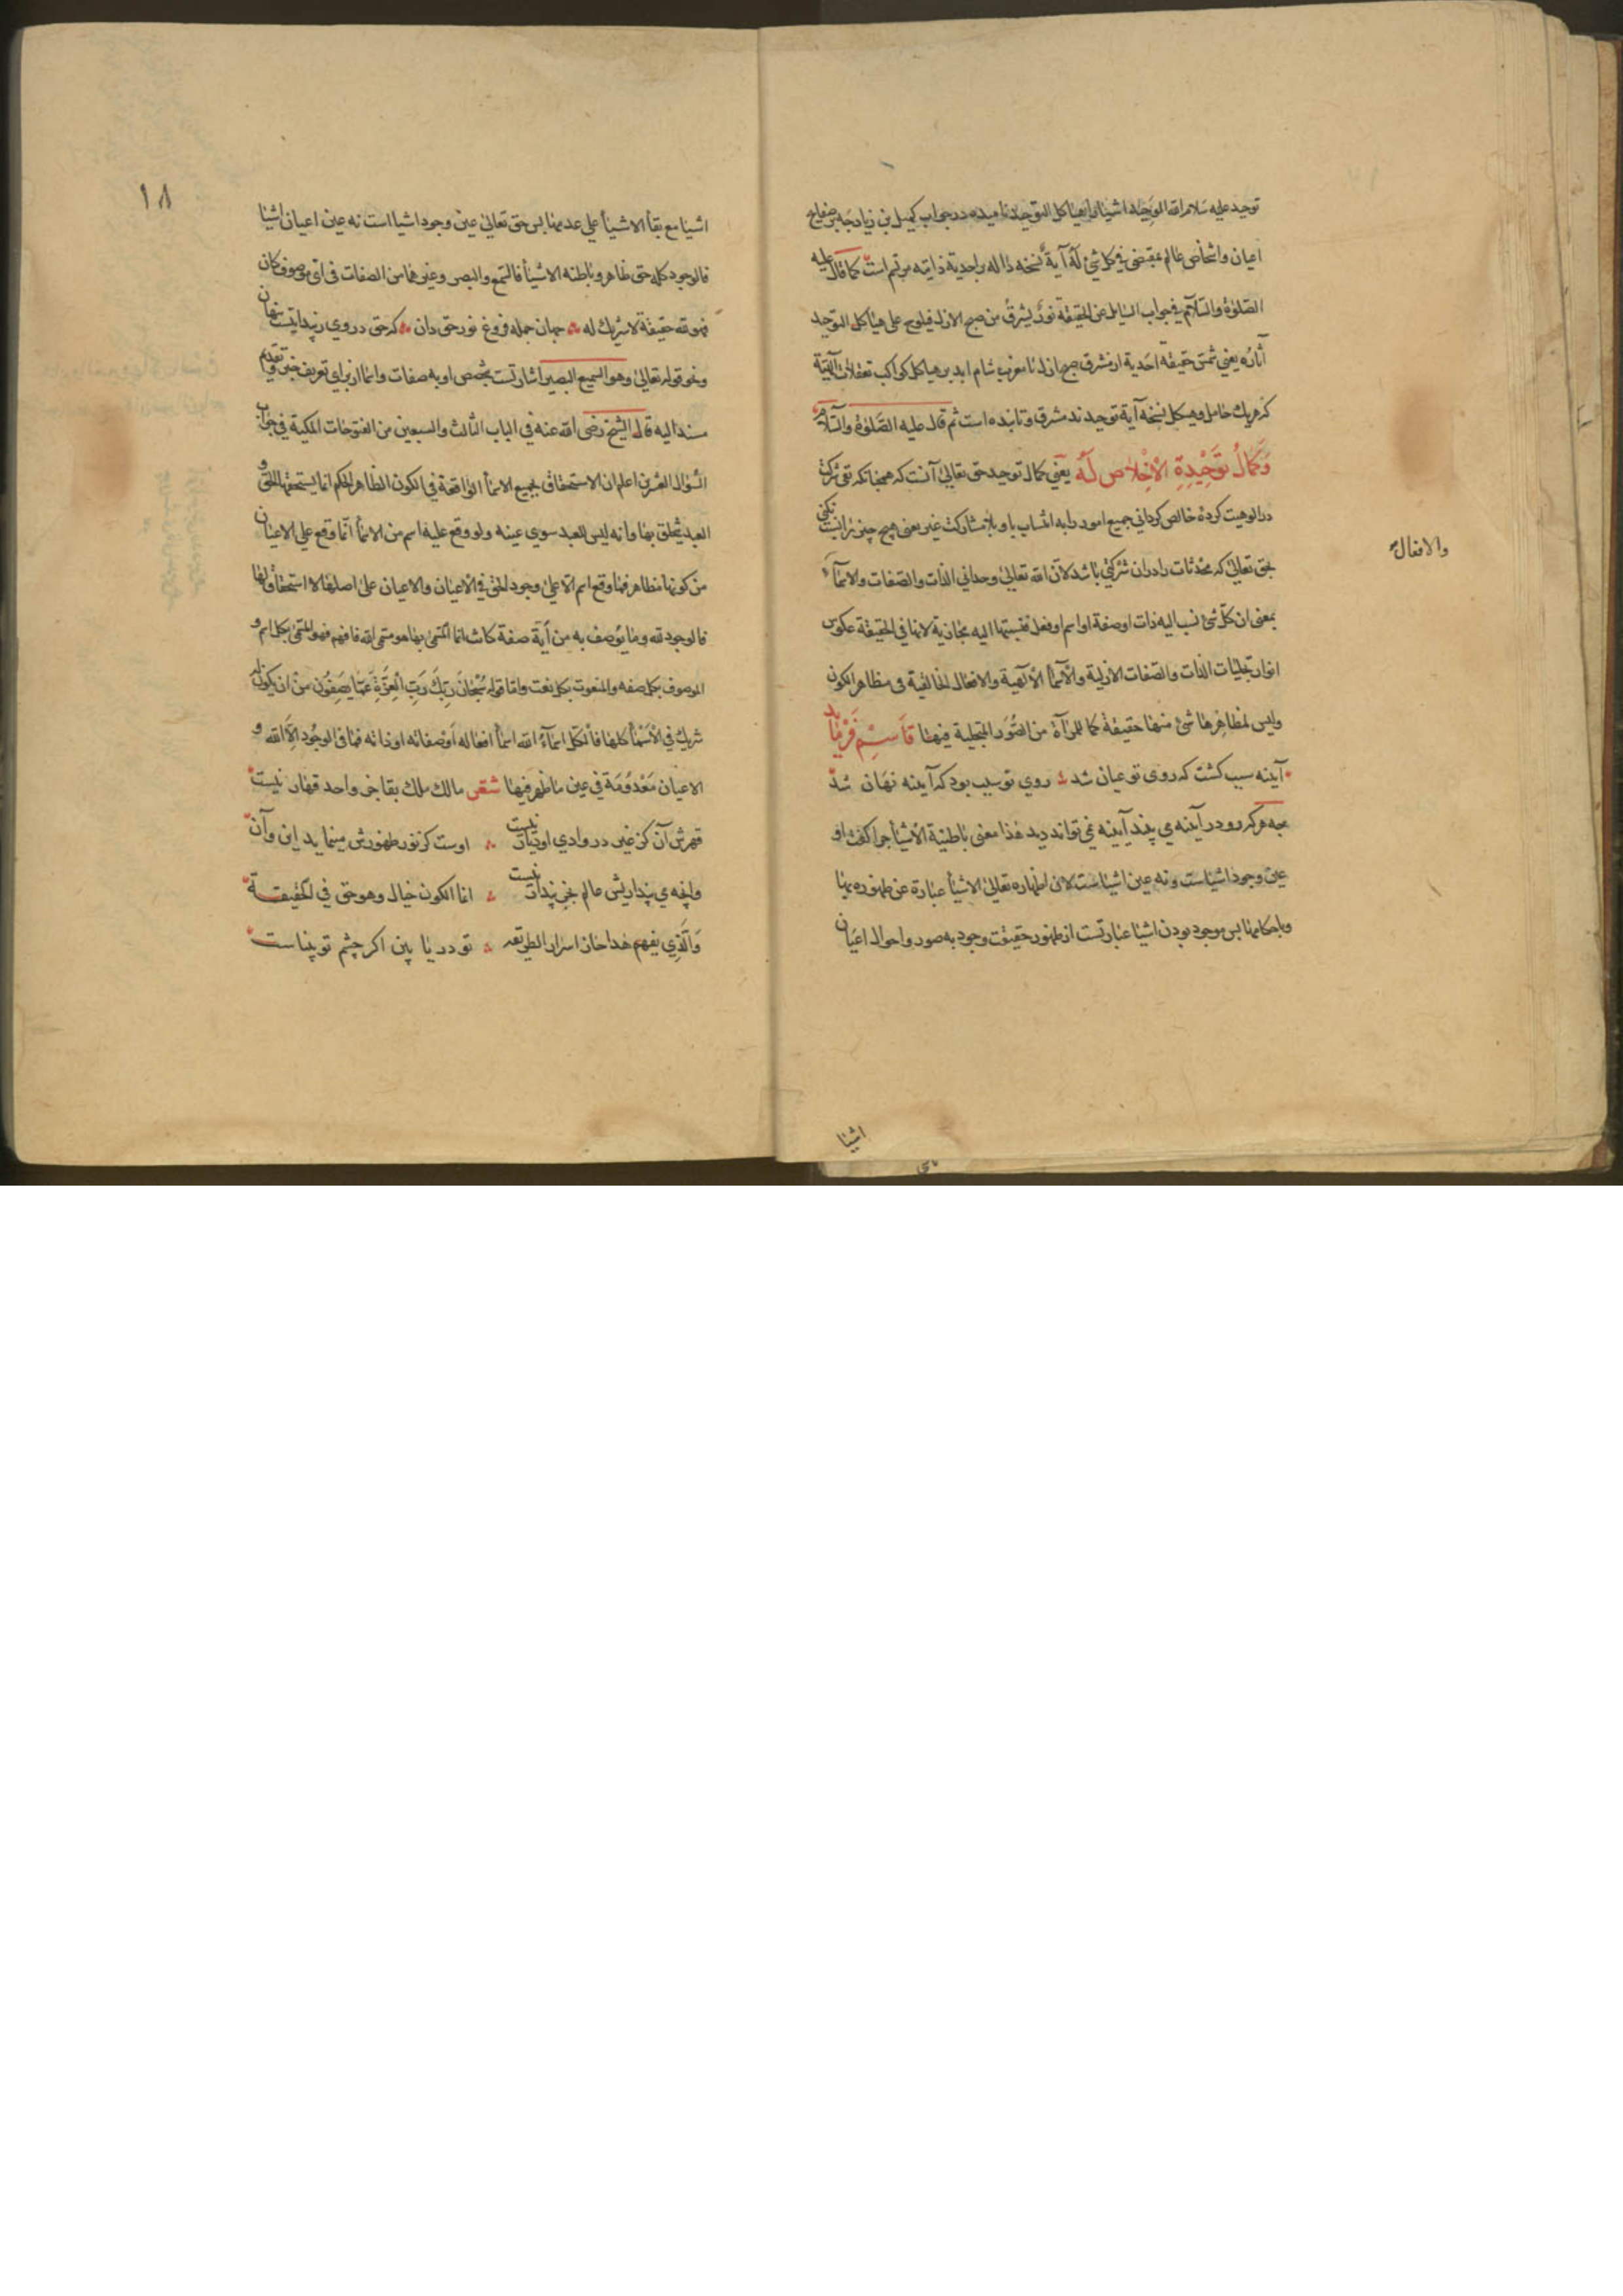 توحید علیه سلام الله الوحید اشیا را هیاکل التوحید نامیده در جواب کمیل بن زیاد چه بر صفایح
اعیان و اشخاص عالم بمقتضی فی کل شیء له آیة نسخه دالة براحدیة ذاتیه مرتسم است کما قال علیه
الصلوة والسلام فی جواب السایل عن الحقیقة نور یشرق من صبح الازل فیلوح علی هیاکل التوحید
آثاره یعنی شمس حقیقة احدیة از مشرق صبح ازل تا مغرب شام ابد بر هیاکل کواکب تعقلات
که هریک حامل و هیکل نسخه آیة توحیدند مشرق و تابنده است ثم قال علیه الصلوة والسلام
وَكَمالُ تَوْحِيْدِهِ الْاِخْلاص لَهُ یعنی کمال توحید حق تعالی آنست که همچنانکه نفی شرکت
در الوهیت کرده خالص کردانی جمیع امور را به انتساب باو بلا مشارکت غیر یعنی هیچ چیز را نسبت نکنی
بحق تعالی که محدثات را در ان شرکتی باشد لان الله تعالی وحدانی الذات والصفات والاسماء
والافعال
بمعنی ان کل شیء نسب الیه ذات او صفة او اسم او فعل فنسبتها الیه مجازیة لانها فی الحقیقة عکوس
انوار تجلیات الذات والصفات الازلیة والاسماء الالهیة والافعال الخالقیة فی مظاهر الکون
ولیس لمظاهرها شیء منها حقیقة کما للمرآة من الصُّوَر المتجلیة فیها قاسم فرماید
آینه سبب کشت که روی تو عیان شد روی تو سبب بود که آینه نهان شد
چه هرکه رو در آینه می بیند آینه نمی تواند دید هذا معنی باطنیة الاشیاء چرا کفت او
عین وجود اشیاست و نه عین اشیاست لان اظهاره تعالی الاشیاء عبارة عن ظهوره بها
وباحکامها پس موجود بودن اشیا عبارتست از ظهور حقیقت وجود به صور و احوال اعیان
اشیا
۱۸
اشیا مع بقاء الاشیاء علی عدمها پس حق تعالی عین وجود اشیا است نه عین اعیان اشیا
فالوجود کله حق ظاهر و باطنه الاشیاء فالسمع والبصر وغیرهما من الصفات فی ای موصوف کان
فهو لله حقیقة لا شریك له جهان جمله فروغ نور حق دان که حق در وی ز پیدایست پنهان
ونحو قوله تعالی وهو السمیع البصیر اشارتست بتخصص او به صفات واما از برای تعریف خبر و تقدیم
مسند الیه قال الشیخ رضی الله عنه فی الباب الثالث والسبعین من الفتوحات المکیة فی جواب
السؤال العشرین اعلم ان الاستحقاق بجمیع الاسماء الواقعة فی الکون الظاهر الحکم انما یستحقها الحق و
العبد یتخلق بها وانه لیس للعبد سوی عینه ولو وقع علیه اسم من الاسماء انما وقع علی الاعیان
من کونها مظاهر فما وقع اسم الا علی وجود الحق فی الاعیان والاعیان علی اصلها لا استحقاق لها
فالوجود لله وما یوصف به من أیة صفة کانت انما المسمی بها هو مسمی الله فافهم فهو المسمی بکل اسم و
الموصوف بکل صفه والمنعوت بکل نعت واما قوله سُبْحانَ رَبِّكَ رَبِّ الْعِزَّةِ عَمّا يَصِفُون من ان یکون له
شریك فی الاسماء کلها فالکل اسماء الله اسماء افعاله او صفاته او ذاته فما فی الوجود الا الله و
الاعیان معدومة فی عین ما ظهر فیها شعر مالك ملك بقا جز واحد قهار نیست
قهرش آن کز غیر در وادی او دیار نیست اوست کز نور ظهورش مینماید این وآن
وانچه می پنداریش عالم بجز پندار نیست انما الکون خیال وهو حق فی الحقیقة
والذی یفهم هذا حاز اسرار الطریقه تو دریا بین اکر چشم تو بیناست